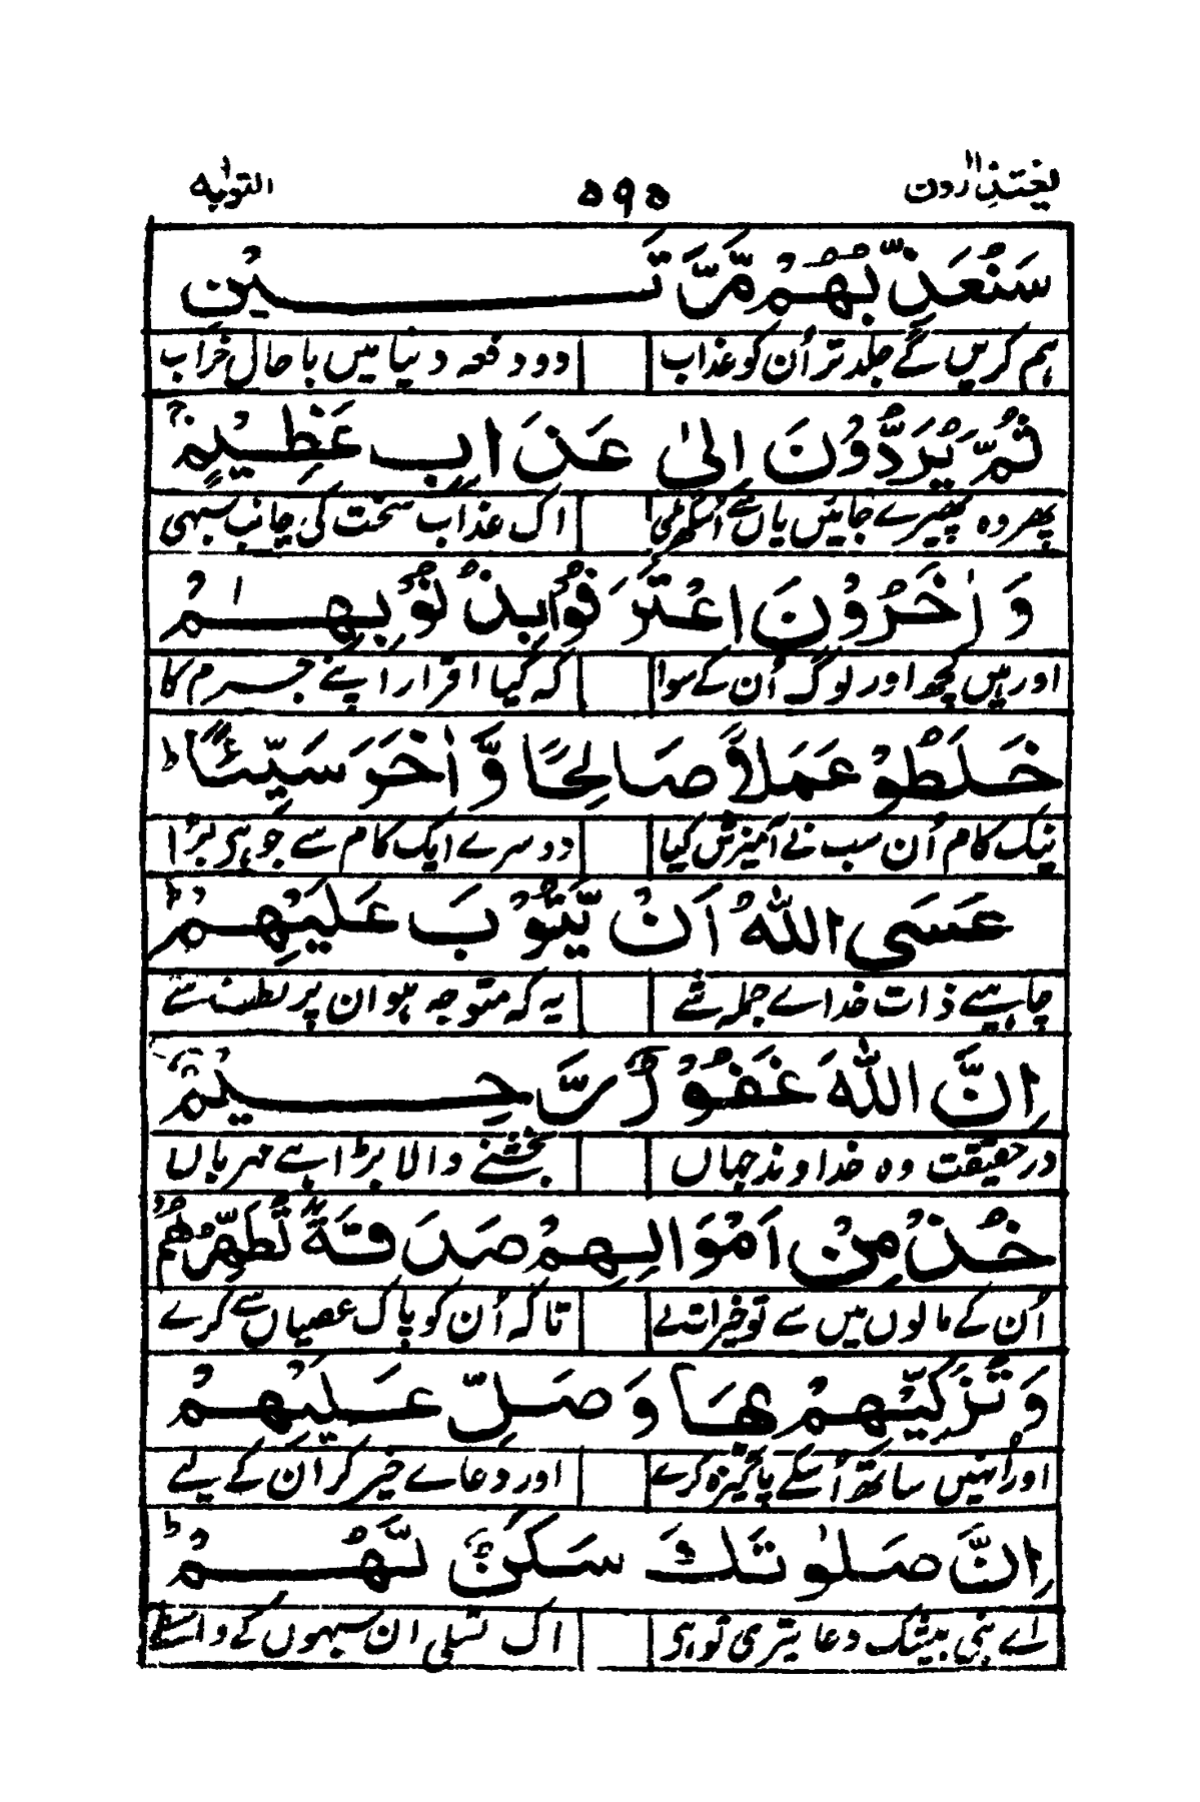 یعتذرون ۱۱ ۵۹۵ التوبه
سَنُعَذِّبُهُمْ مَّرَّتَيْنِ
ہم کریں گے جلد تر اُن کو عذاب دو دفعہ دنیا میں با حال خراب
ثُمَّ يُرَدُّوْنَ اِلٰى عَذَابٍ عَظِيْمٍ
پھر وہ پھیرے جائیں یاں سے اک عذاب سخت کی جانب سبھی
وَاٰخَرُوْنَ اعْتَرَفُوْا بِذُنُوْبِهِمْ
اور ہیں کچھ اور لوگ اُن کے سوا کہ کیا اقرار اپنے جرم کا
خَلَطُوْا عَمَلًا صَالِحًا وَّاٰخَرَ سَيِّئًا ؕ
نیک کام اُن سب نے آمیزش کیا دوسرے ایک کام سے جو ہی بڑا
عَسَى اللّٰهُ اَنْ يَّتُوْبَ عَلَيْهِمْ ؕ
چاہیے ذات خدائے جملہ شے یہ کہ متوجہ ہو ان پر لطف سے
اِنَّ اللّٰهَ غَفُوْرٌ رَّحِيْمٌ
در حقیقت وہ خداوند جہاں بخشنے والا بڑا ہے مہرباں
خُذْ مِنْ اَمْوَالِهِمْ صَدَقَةً تُطَهِّرُهُمْ
اُن کے مالوں میں سے تو خیرات لے تا کہ اُن کو پاک عصیاں سے کرے
وَتُزَكِّيْهِمْ بِهَا وَصَلِّ عَلَيْهِمْ
اور اُنہیں ساتھ اُسکے پاکیزہ کرے اور دعائے خیر کر ان کے لیے
اِنَّ صَلٰوتَكَ سَكَنٌ لَّهُمْ ؕ
اے نبی بیشک دعا تیری تو ہی اک تسلی ان سبہوں کے واسطے